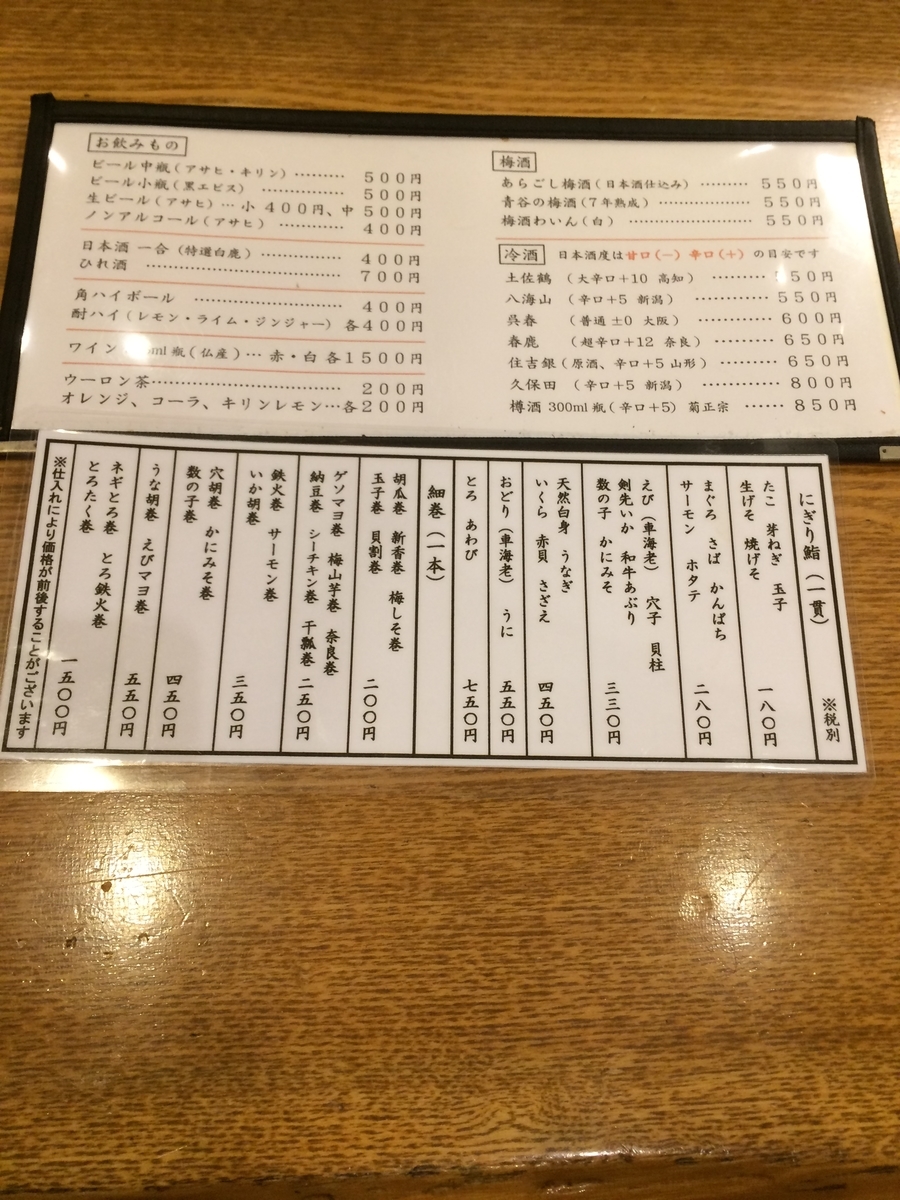 お飲みもの
ビール中瓶(アサヒ・キリン) ……… 500円
ビール小瓶(黒エビス) ………… 500円
生ビール(アサヒ)… 小 400円、中 500円
ノンアルコール(アサヒ) ………… 400円
日本酒 一合 (特選白鹿) ………… 400円
ひれ酒 …………………… 700円
角ハイボール ………………… 400円
酎ハイ(レモン・ライム・ジンジャー) 各400円
ワイン ml瓶(仏産)… 赤・白 各1500円
ウーロン茶……………………… 200円
オレンジ、コーラ、キリンレモン…各200円
梅酒
あらごし梅酒(日本酒仕込み) ……… 550円
青谷の梅酒(7年熟成) …………… 550円
梅酒わいん(白) ………………… 550円
冷酒 日本酒度は甘口(−) 辛口(+) の目安です
土佐鶴 (大辛口+10 高知) ……… 50円
八海山 (辛口+5 新潟) ………… 550円
呉春 (普通 ±0 大阪) ………… 600円
春鹿 (超辛口+12 奈良) ……… 650円
住吉銀(原酒、辛口+5 山形) ……… 650円
久保田 (辛口+5 新潟) ………… 800円
樽酒 300ml瓶(辛口+5) 菊正宗 …… 850円
にぎり鮨(一貫) ※税別
たこ 芽ねぎ 玉子
生げそ 焼げそ 一八〇円
まぐろ さば かんぱち
サーモン ホタテ 二八〇円
えび(車海老) 穴子 貝柱
剣先いか 和牛あぶり
数の子 かにみそ 三三〇円
天然白身 うなぎ
いくら 赤貝 さざえ 四五〇円
おどり(車海老) うに 五五〇円
とろ あわび 七五〇円
細巻(一本)
胡瓜巻 新香巻 梅しそ巻
玉子巻 貝割巻 二〇〇円
ゲソマヨ巻 梅山芋巻 奈良巻
納豆巻 シーチキン巻 干瓢巻 二五〇円
鉄火巻 サーモン巻
いか胡巻 三五〇円
穴胡巻 かにみそ巻
数の子巻 四五〇円
うな胡巻 えびマヨ巻 五五〇円
ネギとろ巻 とろ鉄火巻
とろたく巻 一五〇〇円
※仕入れにより価格が前後することがございます